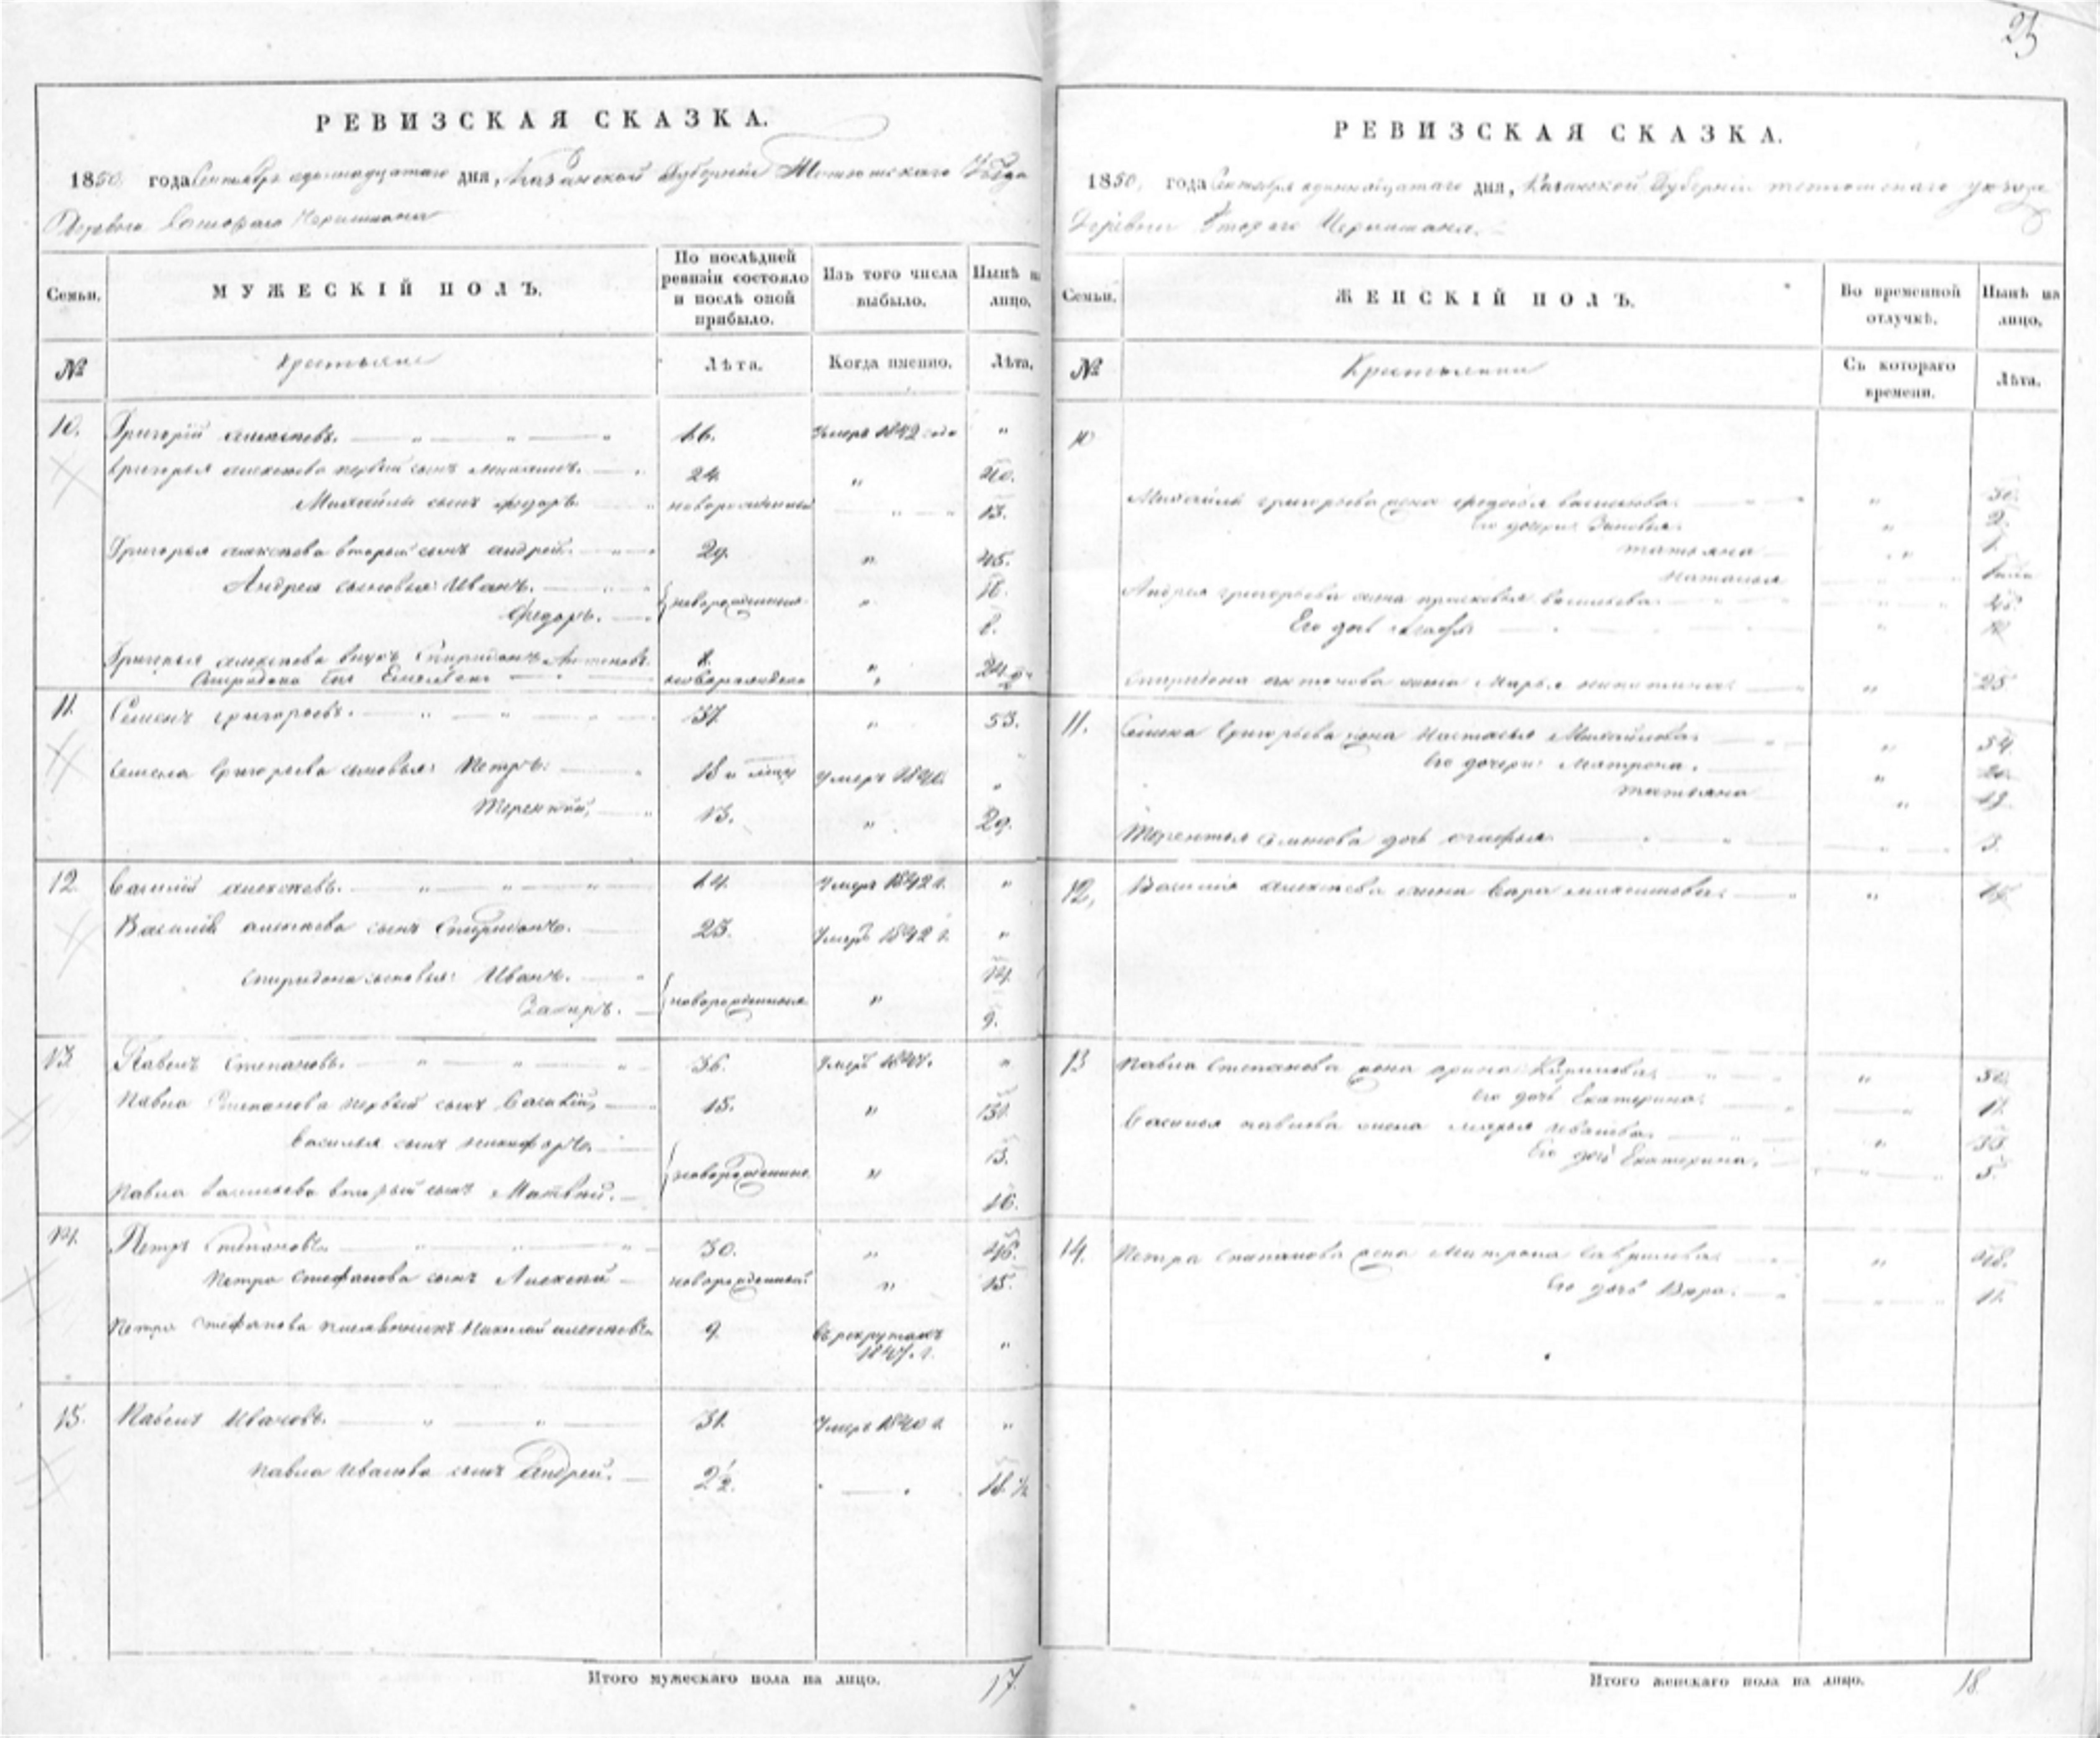 25
РЕВИЗСКАЯ СКАЗКА.
1850 года Сентября одиннадцатаго дня, Казанской Губерніи Тетюшскаго Уѣзда
Деревни Втораго Черемшана
Семьи.
МУЖЕСКІЙ ПОЛЪ.
По послѣдней ревизіи состояло и послѣ оной прибыло.
Изъ того числа выбыло.
Нынѣ на лицо.
№
Крестьяне
Лѣта.
Когда именно.
Лѣта.
10. Григорій Алексѣевъ. 16. Умеръ 1842 года "
Григорья Алексѣева первый сынъ 24. " 40.
Михайлы сынъ Федоръ новорожденный 13.
Григорья Алексѣева вторый сынъ Андрей. 29. " 45.
Андрея сыновья: Иванъ. новорожденные " 16.
Федоръ. 8.
Григорья Алексѣева внукъ Спиридонъ Антоновъ 8. " 24
Спиридона сынъ новорожденный " 2
11. Семенъ Григорьевъ. 37 " 53.
Семена Григорьева сыновья: Петръ. 18 Умеръ 1840. "
Терентій, 13. " 29.
12. Василій Алексѣевъ. 14. Умеръ 1842 г. "
Василія Алексѣева сынъ Спиридонъ. 23. Умеръ 1842 г. "
Спиридона сыновья: Иванъ. новорожденные " 14.
Захаръ. 9.
13 Павелъ Степановъ. 36. Умеръ 1847. "
Павла Степанова первый сынъ Василій, 15. " 31.
Василья сынъ Никифоръ. новорожденные " 13.
Павла вторый сынъ Матвѣй. 16.
14. Петръ Степановъ. 30. " 46.
Петра Стефанова сынъ Алексѣй новорожденный " 15.
Петра Стефанова племянникъ Николай Алексѣевъ 9. въ рекрутахъ "
1847. г.
15. Павелъ Ивановъ. 31. Умеръ 1840 г. "
Павла Иванова сынъ Андрей. 2½. 18.½
Итого мужескаго пола на лицо. 17.
РЕВИЗСКАЯ СКАЗКА.
1850, года Сентября одиннадцатаго дня, Казанской Губерніи Тетюшскаго уѣзда
Деревни Втораго Черемшана.
Семьи.
ЖЕНСКІЙ ПОЛЪ.
Во временной отлучкѣ.
Нынѣ на лицо.
№
Крестьянки
Съ котораго времени.
Лѣта.
10
Михайлы Григорьева жена Федосья Васильева. " 30.
Его дочери: Зиновья. " 2.
Татьяна " 1.
Наталья
Андрея Григорьева жена Прасковья Васильева.
Его дочь "
Спиридона Антонова жена Марья Никитина. " 25.
11. Семена Григорьева жена Настасья Михайлова. " 54.
Его дочери: Матрона. " 20.
Татьяна " 19.
Терентья Семенова дочь 3.
12, Василія Алексѣева жена Максимова. "
13 Павла Степанова жена Арина Кирилова. " 50.
Его дочь Екатерина. " 11.
Василья Павлова жена Марья Иванова. " 35.
Его дочь Екатерина. " 5.
14. Петра Степанова жена Матрона Гаврилова. " 48.
Его дочь Вера. " 11.
Итого женскаго пола на лицо. 18